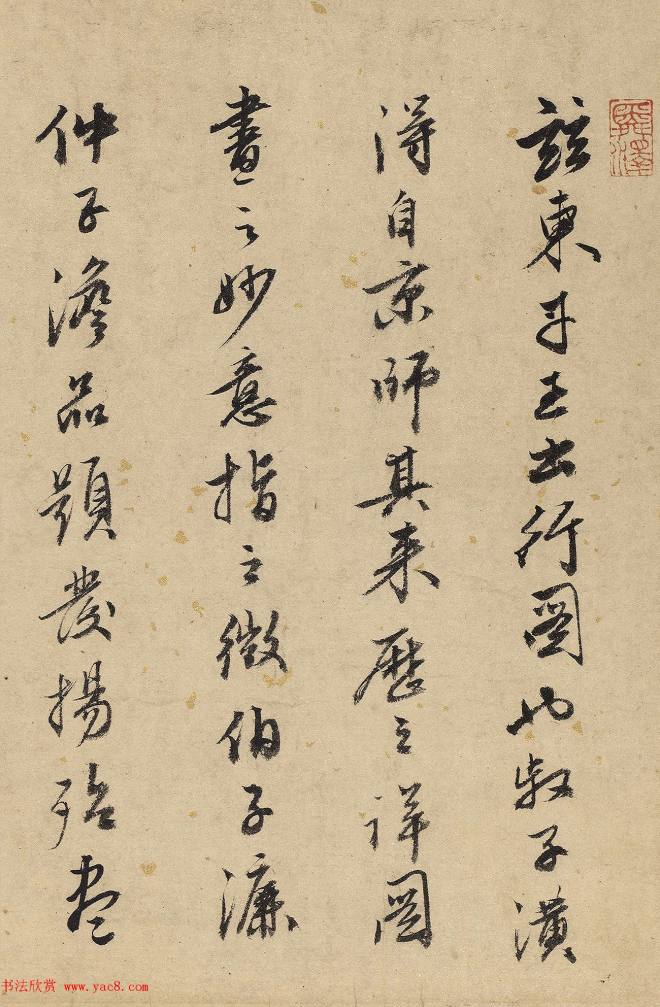 玆東丹王出行圖也叔子潢
得自京師其來歷之詳圖
畫之妙意指之微伯子濂
仲子澹品題發揚殆盡
书法欣赏 www.yac8.com